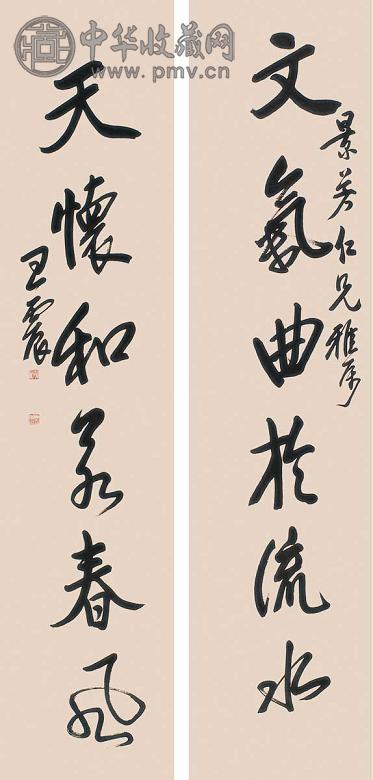 中华收藏网
www.pmv.cn
景芳仁兄雅属
文氣曲於流水
天懷和若春風
王震